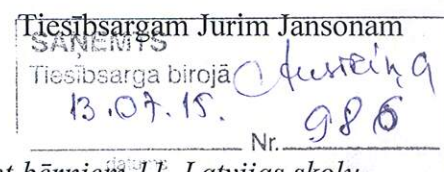 Tiesībsargam Jurim Jansonam
SAŅEMTS
Tiesībsarga birojā
13.07.15.
Nr. 986
datums
bērniem 11. Latvijas skolu